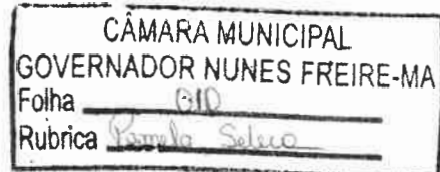 CÂMARA MUNICIPAL
GOVERNADOR NUNES FREIRE-MA
Folha 010
Rubrica